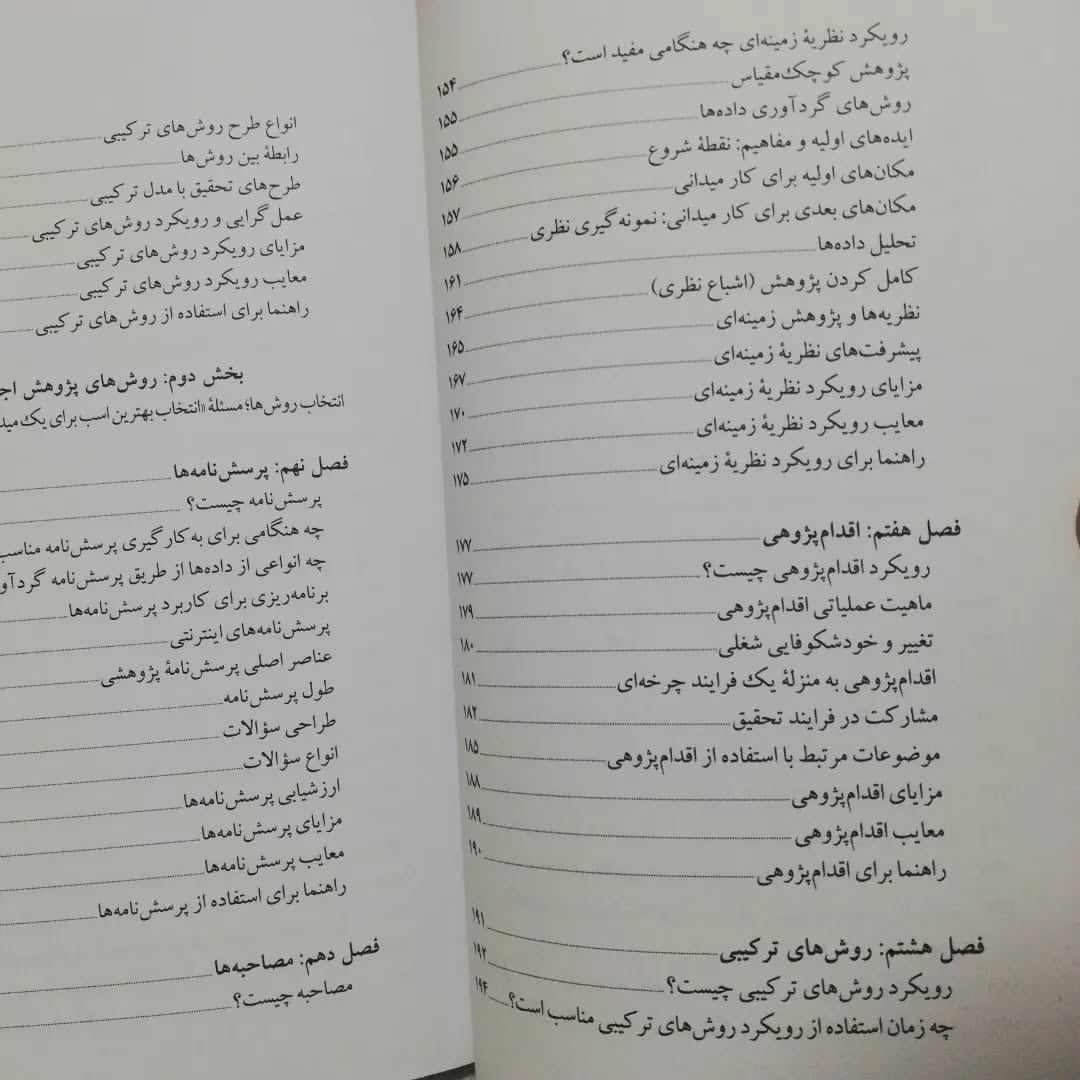 رویکرد نظریهٔ زمینه‌ای چه هنگامی مفید است؟ ۱۵۴
پژوهش کوچک‌مقیاس ۱۵۵
روش‌های گردآوری داده‌ها ۱۵۵
ایده‌های اولیه و مفاهیم: نقطهٔ شروع ۱۵۶
مکان‌های اولیه برای کار میدانی ۱۵۷
مکان‌های بعدی برای کار میدانی: نمونه‌گیری نظری ۱۵۸
تحلیل داده‌ها ۱۶۱
کامل کردن پژوهش (اشباع نظری) ۱۶۴
نظریه‌ها و پژوهش زمینه‌ای ۱۶۵
پیشرفت‌های نظریهٔ زمینه‌ای ۱۶۷
مزایای رویکرد نظریهٔ زمینه‌ای ۱۷۰
معایب رویکرد نظریهٔ زمینه‌ای ۱۷۲
راهنما برای رویکرد نظریهٔ زمینه‌ای ۱۷۵
فصل هفتم: اقدام‌پژوهی ۱۷۷
رویکرد اقدام‌پژوهی چیست؟ ۱۷۷
ماهیت عملیاتی اقدام‌پژوهی ۱۷۹
تغییر و خودشکوفایی شغلی ۱۸۰
اقدام‌پژوهی به منزلهٔ یک فرایند چرخه‌ای ۱۸۱
مشارکت در فرایند تحقیق ۱۸۲
موضوعات مرتبط با استفاده از اقدام‌پژوهی ۱۸۵
مزایای اقدام‌پژوهی ۱۸۸
معایب اقدام‌پژوهی ۱۸۹
راهنما برای اقدام‌پژوهی ۱۹۰
فصل هشتم: روش‌های ترکیبی ۱۹۱
رویکرد روش‌های ترکیبی چیست؟ ۱۹۲
چه زمان استفاده از رویکرد روش‌های ترکیبی مناسب است؟ ۱۹۴
انواع طرح روش‌های ترکیبی
رابطهٔ بین روش‌ها
طرح‌های تحقیق با مدل ترکیبی
عمل‌گرایی و رویکرد روش‌های ترکیبی
مزایای رویکرد روش‌های ترکیبی
معایب رویکرد روش‌های ترکیبی
راهنما برای استفاده از روش‌های ترکیبی
بخش دوم: روش‌های پژوهش
انتخاب روش‌ها؛ مسئلهٔ «انتخاب بهترین اسب برای یک
فصل نهم: پرسش‌نامه‌ها
پرسش‌نامه چیست؟
چه هنگامی برای به‌کارگیری پرسش‌نامه مناسب
چه انواعی از داده‌ها از طریق پرسش‌نامه
برنامه‌ریزی برای کاربرد پرسش‌نامه‌ها
پرسش‌نامه‌های اینترنتی
عناصر اصلی پرسش‌نامهٔ پژوهشی
طول پرسش‌نامه
طراحی سؤالات
انواع سؤالات
ارزشیابی پرسش‌نامه‌ها
مزایای پرسش‌نامه‌ها
معایب پرسش‌نامه‌ها
راهنما برای استفاده از پرسش‌نامه‌ها
فصل دهم: مصاحبه‌ها
مصاحبه چیست؟